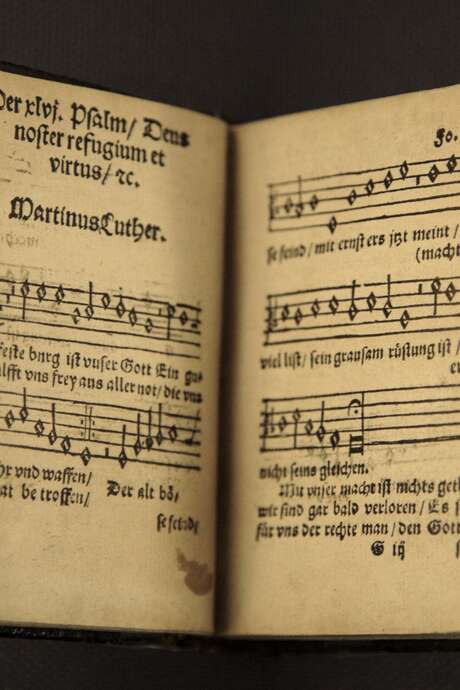 Der xlvj. Psalm/ Deus
noster refugium et
virtus/ ꝛc.
Martinus Luther.
feste bnrg ist vnser Gott Ein gu-
ilfft vns frey aus aller not/ die vns
hr vnd waffen/
at be troffen/ Der alt bö,
se feind/
30.
se feind/ mit ernst ers jtzt meint/
(macht
viel list/ sein grausam rüstung ist/
er
nicht seins gleichen.
Mit vnser macht ist nichts get
wir sind gar bald verloren/ Es s
für vns der rechte man/ den Gott
G iij